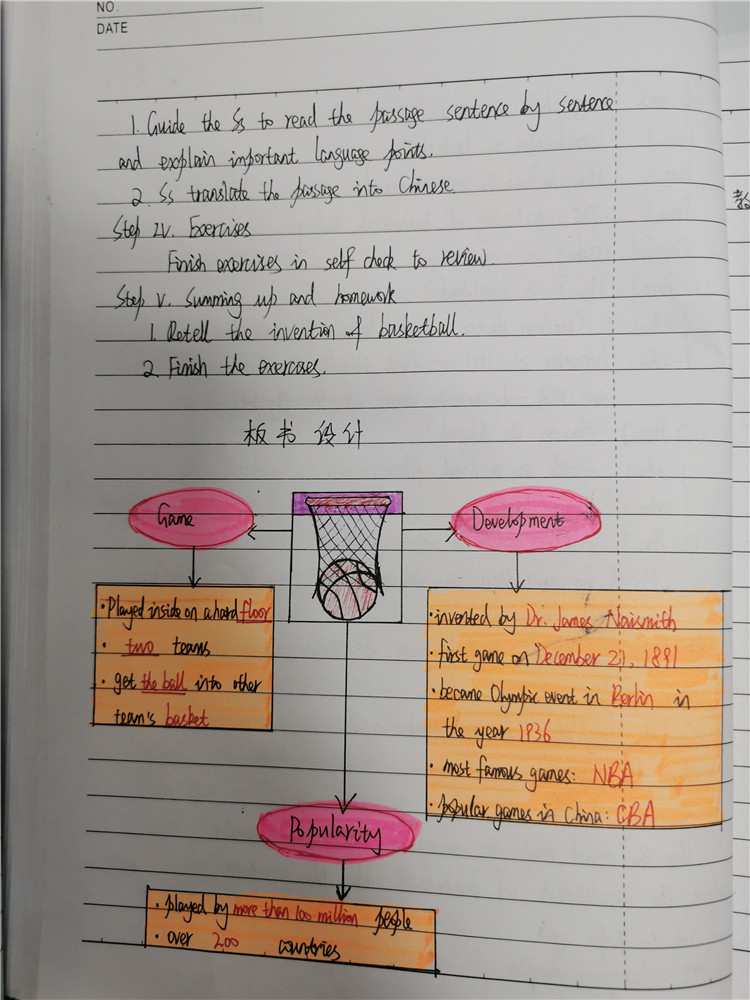 NO.
DATE
1. Guide the Ss to read the passage sentence by sentence
and explain important language points.
2. Ss translate the passage into Chinese
Step IV. Exercises
Finish exercises in self check to review.
Step V. Summing up and homework
1. Retell the invention of basketball.
2. Finish the exercises.
板书设计
Game
Development
·Played inside on a hard floor
· two teams
· get the ball into other
team's basket
·invented by Dr. James Naismith
·first game on December 21, 1891
·became Olympic event in Berlin in
the year 1936
· most famous games: NBA
· popular games in China: CBA
Popularity
· played by more than 100 million people
· over 200 countries